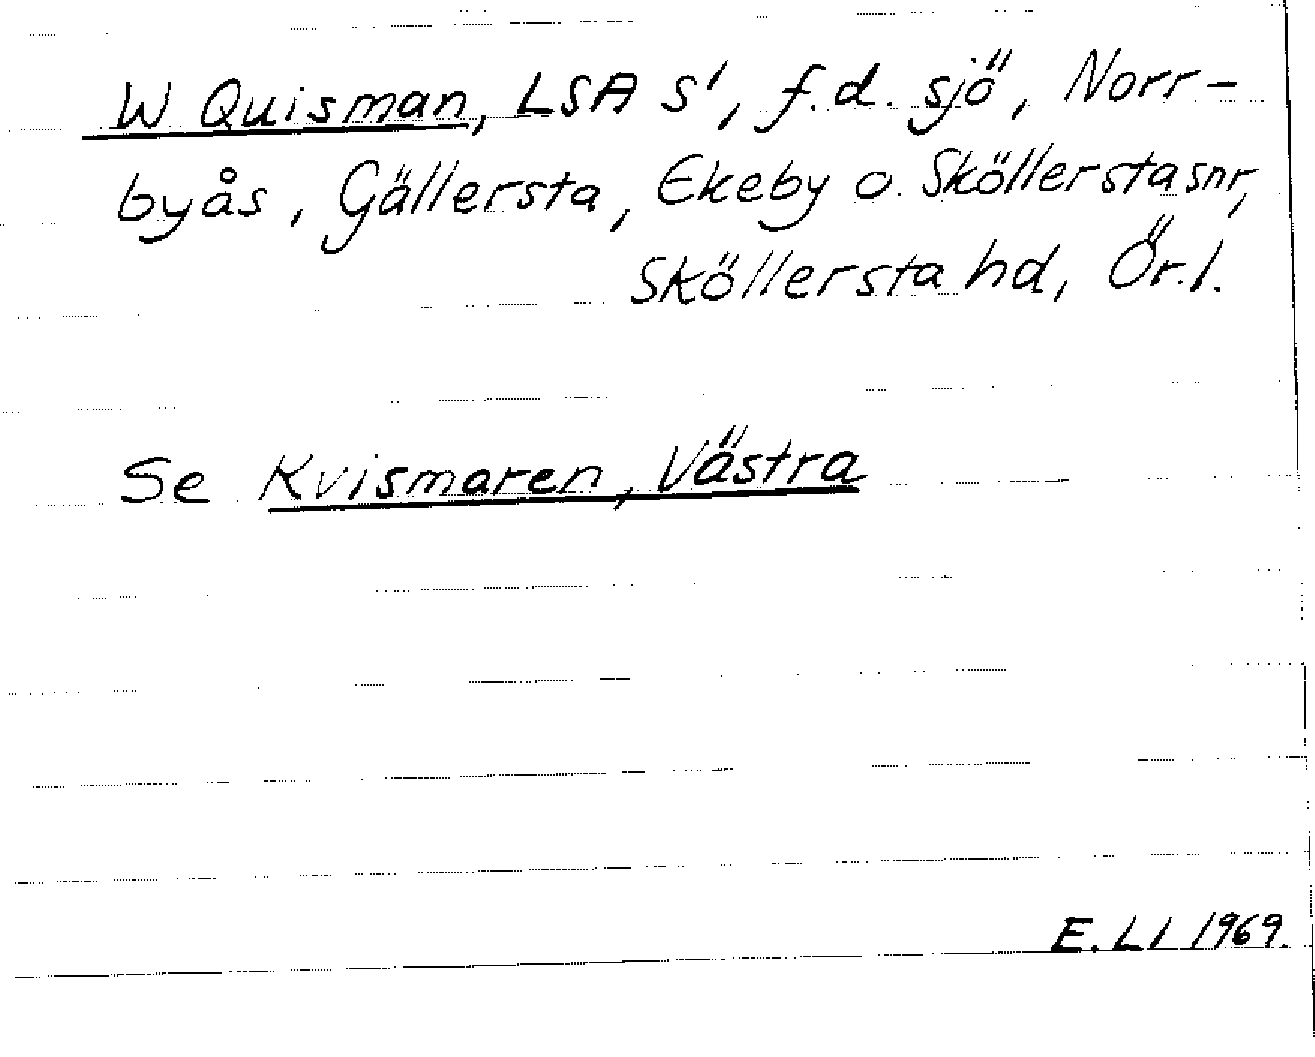 W Quisman, LSA S1, f.d. sjö, Norr-
byås, Gällersta, Ekeby o. Sköllersta snr,
Sköllersta hd, Ör.l.
Se Kvismaren, Västra
E. Ll 1969.